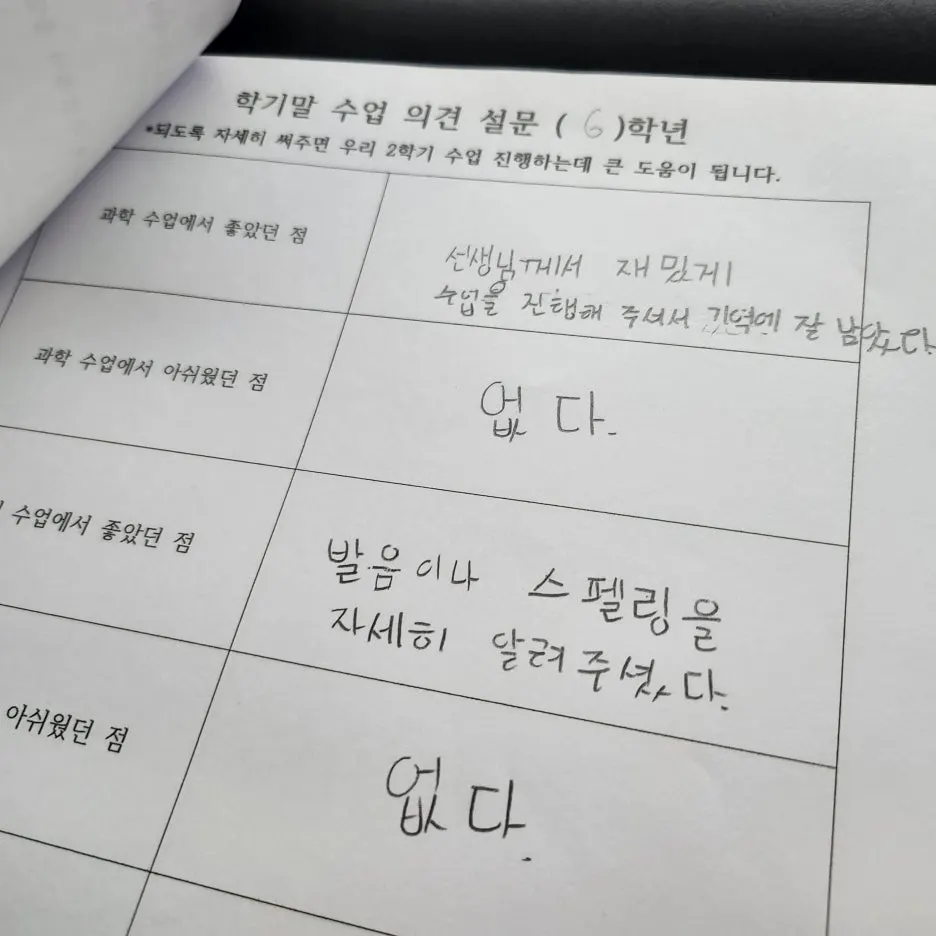 학기말 수업 의견 설문 ( 6 )학년
*되도록 자세히 써주면 우리 2학기 수업 진행하는데 큰 도움이 됩니다.
과학 수업에서 좋았던 점
선생님께서 재밌게
수업을 진행해 주셔서 기억에 잘 남았다.
과학 수업에서 아쉬웠던 점
없다.
수업에서 좋았던 점
발음이나 스펠링을
자세히 알려주셨다.
아쉬웠던 점
없다.